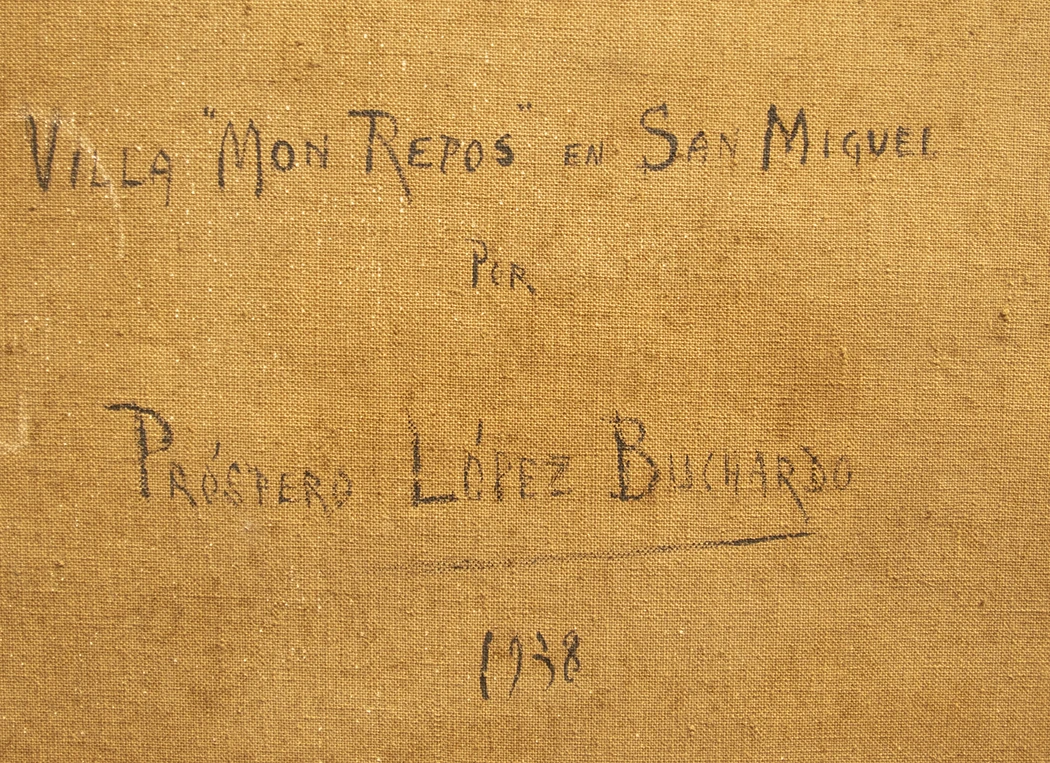 Villa "Mon Repos" en San Miguel
Por
Próspero López Buchardo
1938